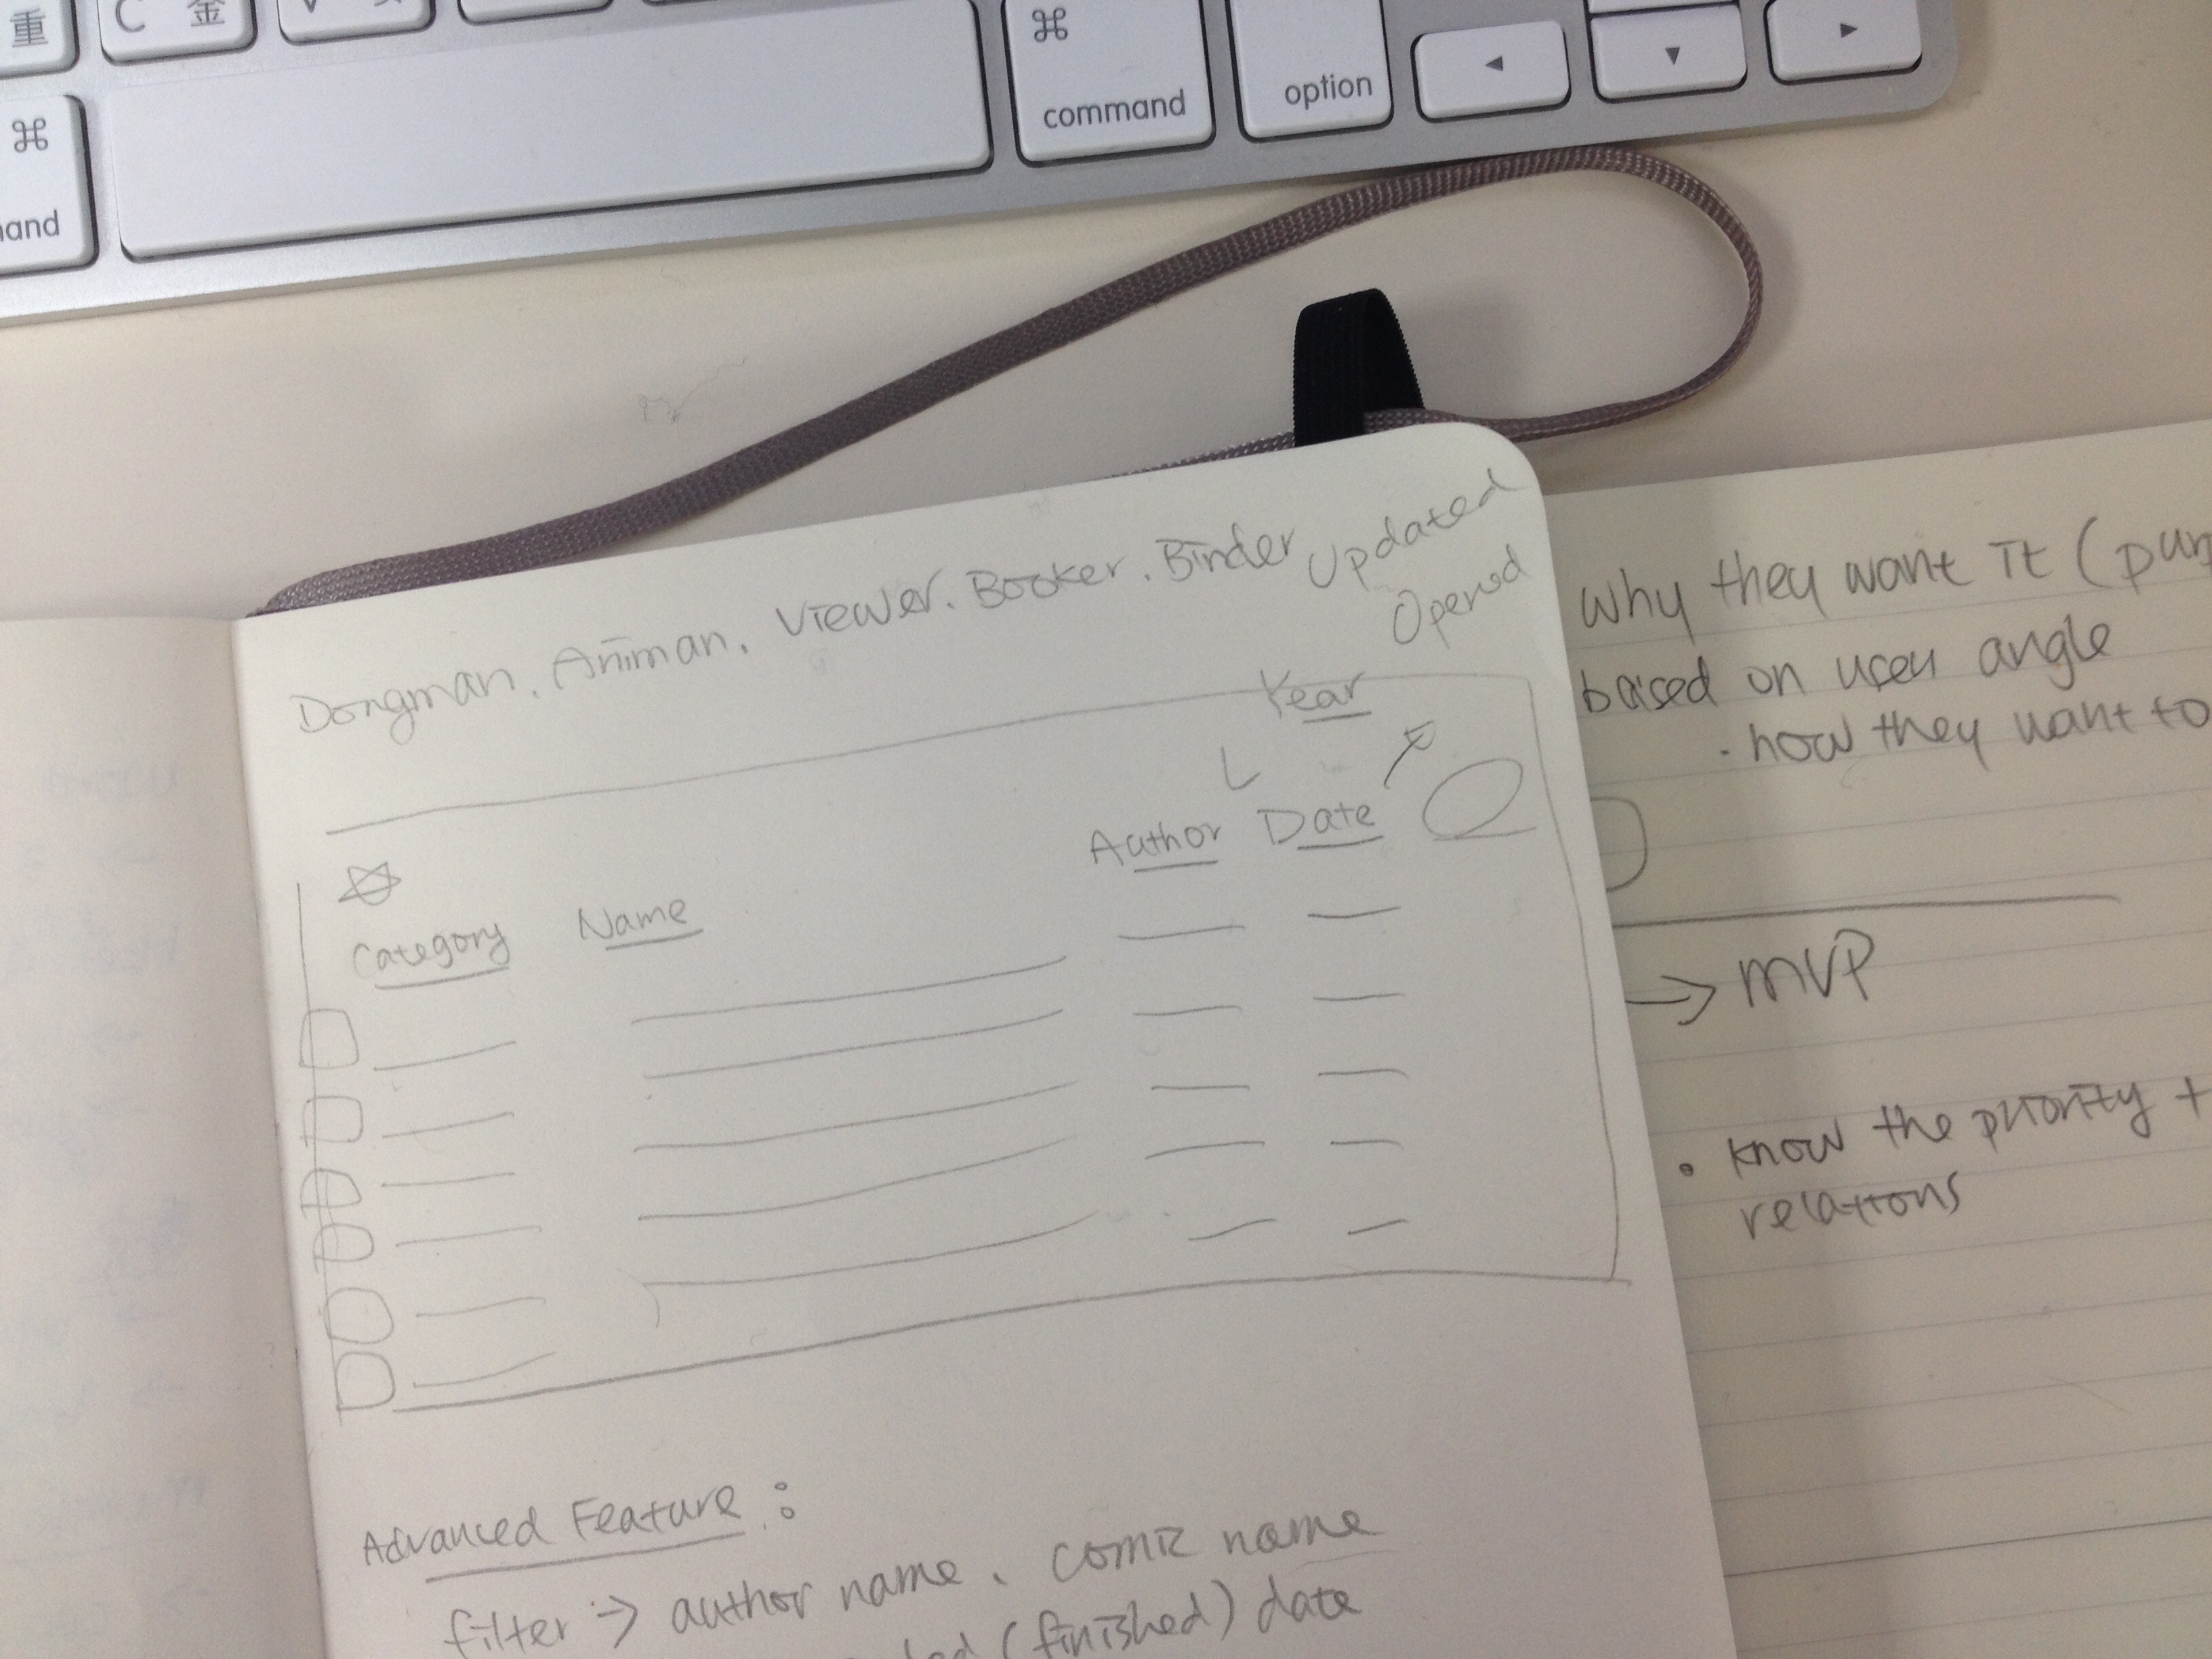 重
C 金
⌘
command
option
◀
▼
▶
⌘
Dongman. Animan. Viewer. Booker. Binder
Updated
Opened
Year
Author
Date
Category
Name
Advanced Feature:
filter -> author name. comic name
(finished) date
why they want it (
based on user angle
· how they want to
→ MVP
• know the priority +
relations